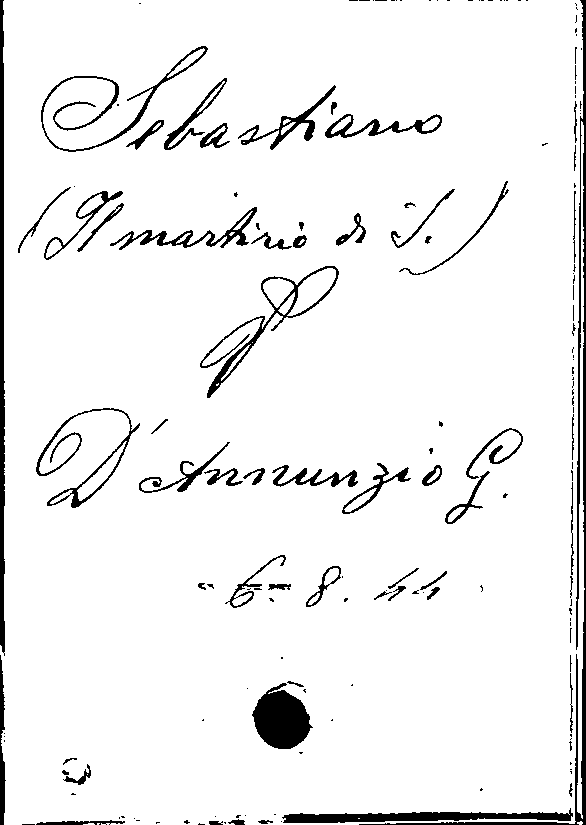 Sebastiano
(Il martirio di S.)
D'Annunzio G.
- 6 - 8. 44